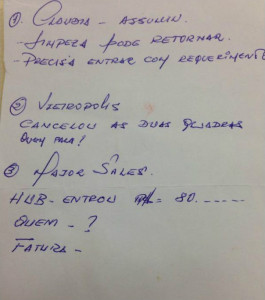 ① CLAUDIA - ASSUMIU.
- LIMPEZA PODE RETORNAR.
- PRECISA ENTRAR COM REQUERIMENTO
② VIETROPOLIS
CANCELOU AS DUAS QUADRAS
QUEM FALA!
③ MAJOR SALES.
HUB - ENTROU R$ = 80. -----
QUEM - ?
FATURA -